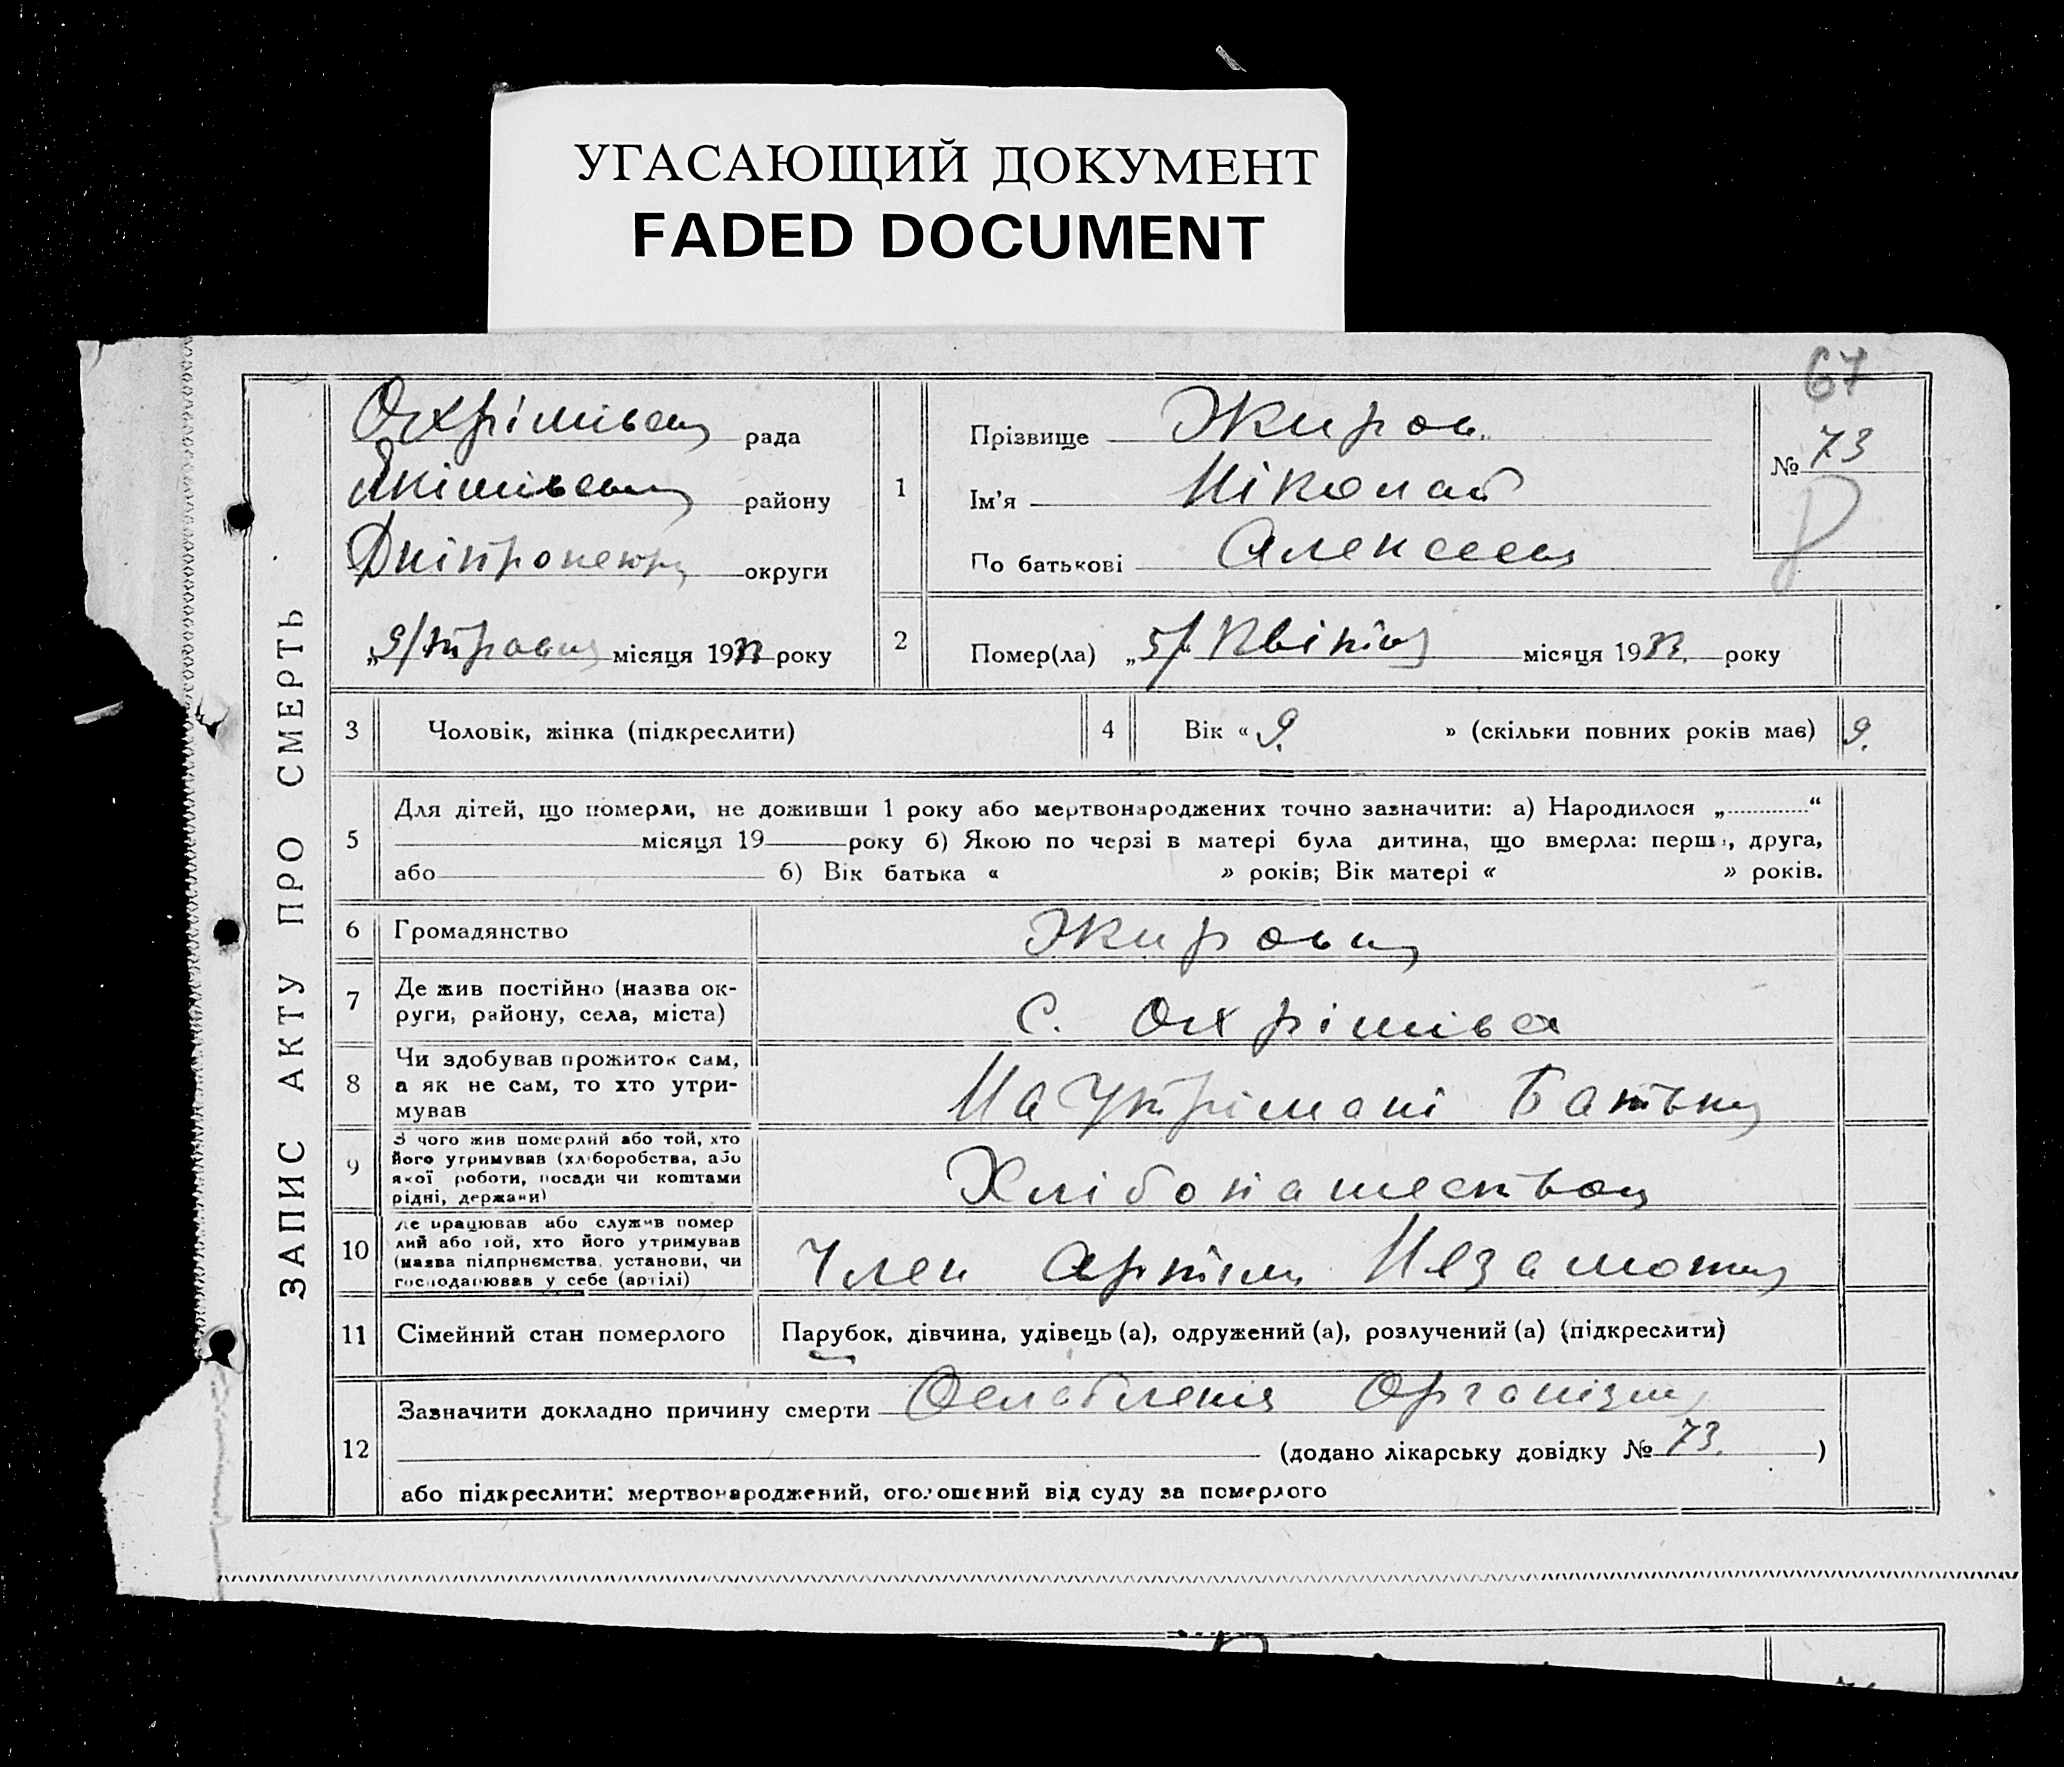 УГАСАЮЩИЙ ДОКУМЕНТ
FADED DOCUMENT
67
ЗАПИС АКТУ ПРО СМЕРТЬ
Охрімівсц рада
району
округи
„9/травня місяця 1933 року
1
Прізвище Жиров.
Ім'я Ніколай
По батькові Алексеев
№ 73
2
Помер(ла) „5/ Квітня місяця 1933. року
3
Чоловік, жінка (підкреслити)
4
Вік « 9. » (скільки повних років має) 9.
5
Для дітей, що померли, не доживши 1 року або мертвонароджених точно зазначити: а) Народилося „ “
місяця 19 року б) Якою по черзі в матері була дитина, що вмерла: перша, друга,
або б) Вік батька « » років; Вік матері « » років.
6
Громадянство
7
Де жив постійно (назва ок-
руги, району, села, міста)
с. Охрімівка
8
Чи здобував прожиток сам,
а як не сам, то хто утри-
мував
На Утрімані Батьку
9
З чого жив померлий або той, хто
його утримував (хліборобства, або
якої роботи, посади чи коштами
рідні, держави)
Хлібопашеством
10
Де працював або служив помер
лий або той, хто його утримував
(назва підприємства, установи, чи
господарював у себе (артілі)
Член Артілі Незаможн
11
Сімейний стан померлого
Парубок, дівчина, удівець (а), одружений (а), розлучений (а) (підкреслити)
12
Зазначити докладно причину смерти Ослабленія Організм
(додано лікарську довідку № 73. )
або підкреслити: мертвонароджений, оголошений від суду за померлого